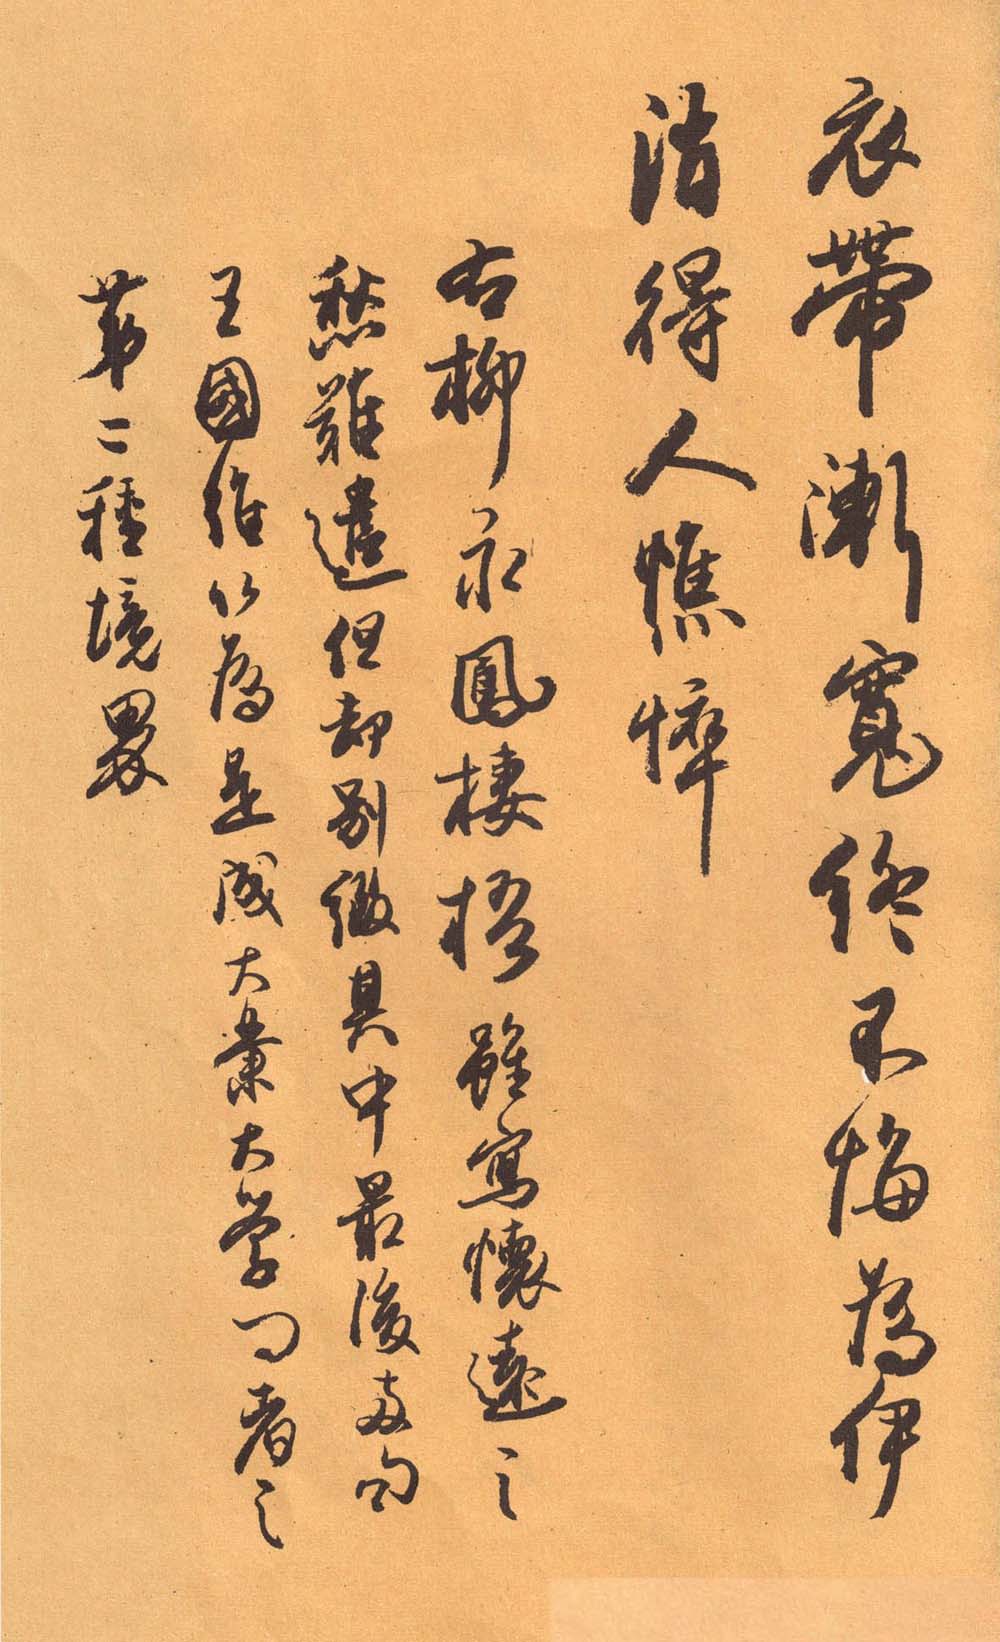 衣帶漸寬終不悔為伊
消得人憔悴
右柳永鳳棲梧雖寫懷遠之
愁難遣但却别緻其中最後両句
王國維以為是成大業大学问者之
第二種境界